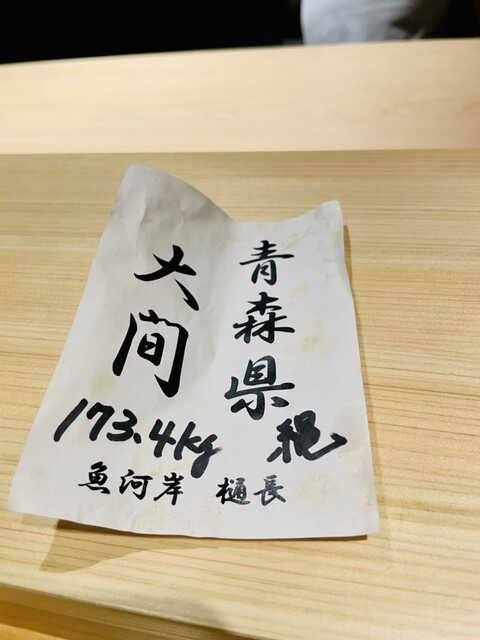 青森県
大間
173.4kg
魚河岸 樋長